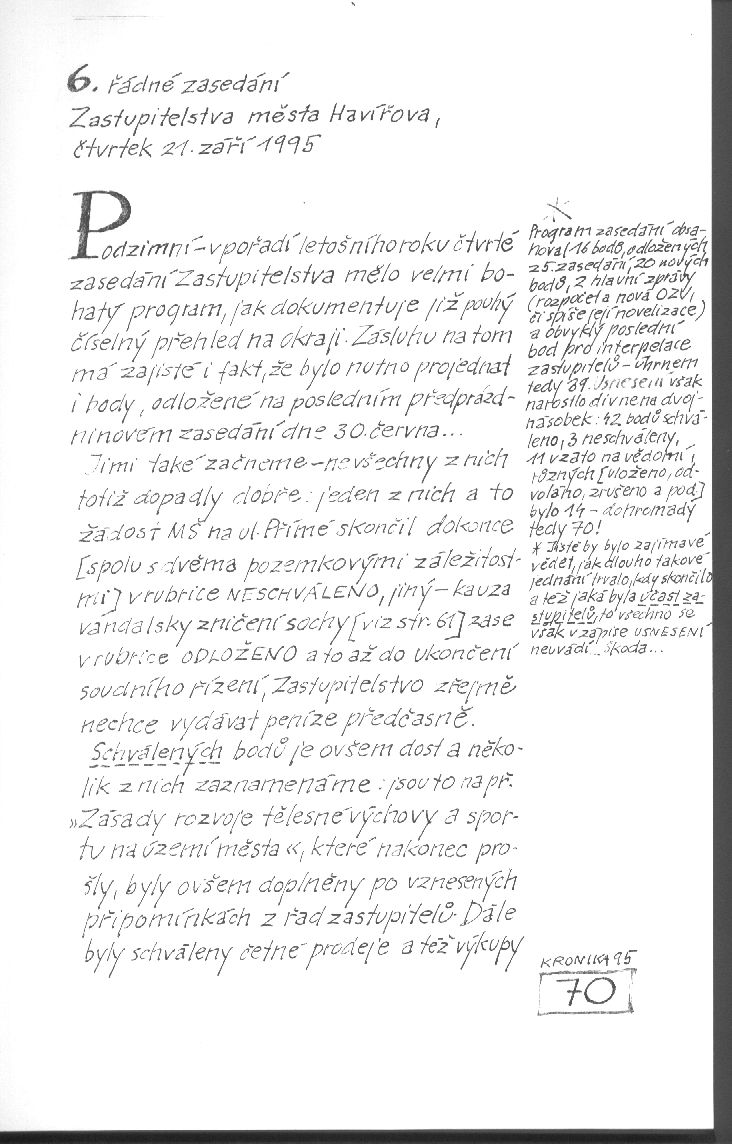 6. řádné zasedání
Zastupitelstva města Havířova,
čtvrtek 21. září 1995
Podzimní – v pořadí letošního roku čtvrté
zasedání Zastupitelstva mělo velmi bo-
hatý program, jak dokumentuje již pouhý
číselný přehled na okraji. Zásluhu na tom
má zajisté i fakt, že bylo nutno projednat
i body, odložené na posledním předprázd-
ninovém zasedání dne 30. června...
Jimi také začneme – ne všechny z nich
totiž dopadly dobře: jeden z nich a to
žádost MŠ na ul. Přímé skončil dokonce
[spolu s dvěma pozemkovými záležitost-
mi] v rubrice NESCHVÁLENO, jiný – kauza
vandalsky zničení sochy [viz str. 61] zase
v rubrice ODLOŽENO a to až do ukončení
soudního řízení, Zastupitelstvo zřejmě
nechce vydávat peníze předčasně.
Schválených bodů je ovšem dost a něko-
lik z nich zaznamenáme: jsou to např.
»Zásady rozvoje tělesné výchovy a spor-
tu na území města«, které nakonec pro-
šly, byly ovšem doplněny po vznesených
připomínkách z řad zastupitelů. Dále
byly schváleny četné prodeje a též výkupy
*
Program zasedání obsa-
hoval 16 bodů, odložených
z 5. zasedání, 20 nových
bodů, 2 hlavní zprávy
(rozpočet a nová OZV,
či spíše její novelizace)
a obvyklý poslední
bod pro interpelace
zastupitelů – úhrnem
tedy 39. Usnesení však
narostlo div ne na dvoj-
násobek: 42 bodů schvá-
leno, 3 neschváleny,
11 vzato na vědomí,
různých [uloženo, od-
voláno, zrušeno a pod]
bylo 14 – dohromady
tedy 70!
* Jistě by bylo zajímavé
vědět, jak dlouho takové
jednání trvalo, kdy skončilo
a též jaká byla účast za-
stupitelů, to všechno se
však v zápise USNESENÍ
neuvádí. Škoda...
KRONIKA 95
70